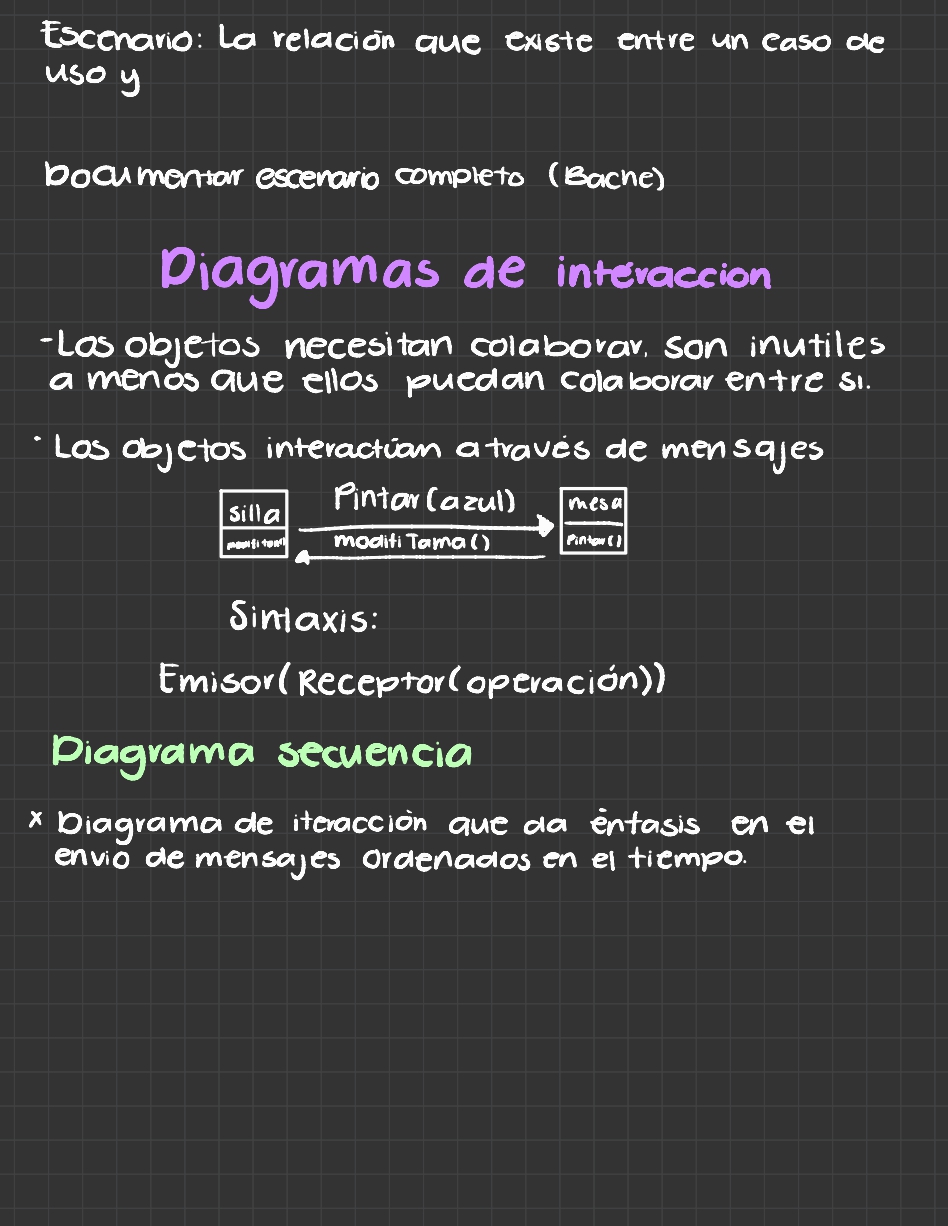 Escenario: La relación que existe entre un caso de
uso y
Documentar escenario completo (Bache)
Diagramas de interaccion
-Los objetos necesitan colaborar. son inutiles
a menos que ellos puedan colaborar entre si.
· Los objetos interactúan a través de mensajes
Pintar(azul)
silla
mesa
modifiTama()
Pintar()
Sintaxis:
Emisor(Receptor(operación))
Diagrama secuencia
x Diagrama de iteracción que da énfasis en el
envio de mensajes ordenados en el tiempo.